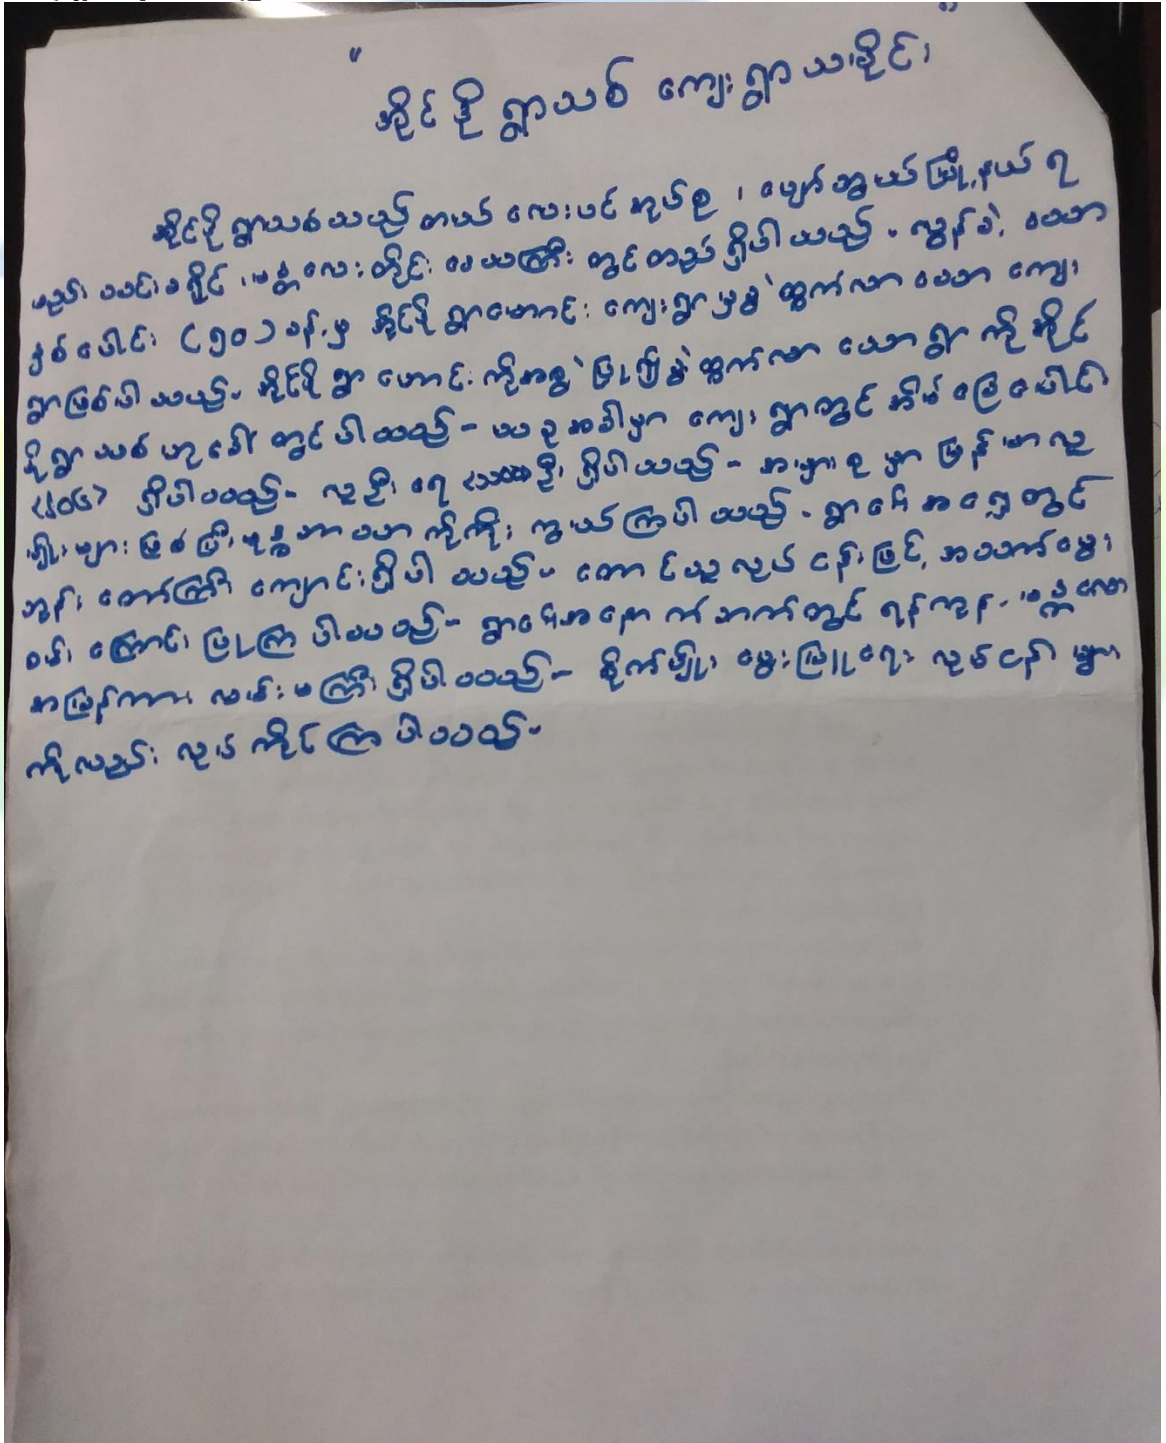 " အိုင်ဒိုရွာသစ် ကျေးရွာသမိုင်း "
အိုင်ဒိုရွာသစ်သည် တယ် လေးပင်အုပ်စု ၊ ပျော်ဘွယ်မြို့နယ် ရ
မည်းသင်းခရိုင် ၊ မန္တလေးတိုင်းဒေသကြီး တွင်တည်ရှိပါသည်။ လွန်ခဲ့သော
နှစ်ပေါင်း (၅၀) ခန့်မှ အိုင်ဒိုရွာဟောင်း ကျေးရွာမှခွဲထွက်လာသော ကျေး
ရွာဖြစ်ပါသည်။ အိုင်ဒိုရွာဟောင်းကိုအစွဲပြု၍ခွဲထွက်လာသောရွာကိုအိုင်
ဒိုရွာသစ်ဟုခေါ်တွင်ပါသည်- ယခုအခါမှာ ကျေးရွာတွင်အိမ်ခြေပေါင်း
ရှိပါသည်- လူဦးရေ ဦးရှိပါသည်- အများစုမှာမြန်မာလူ
မျိုးများဖြစ်ပြီးဗုဒ္ဓဘာသာကိုကိုးကွယ်ကြပါသည်- ရွာ၏အရှေ့တွင်
ဘုန်းတော်ကြီးကျောင်းရှိပါသည်။ တောင်ယူလုပ်ငန်းဖြင့်အသက်မွေး
ဝမ်းကြောင်းပြုကြပါသည်- ရွာ၏အနောက်ဘက်တွင် ရန်ကုန်-မန္တလေး
အမြန်ကားလမ်းမကြီးရှိပါသည်- စိုက်ပျိုးမွေးမြူရေးလုပ်ငန်းများ
ကိုလည်းလုပ်ကိုင်ကြပါသည်။